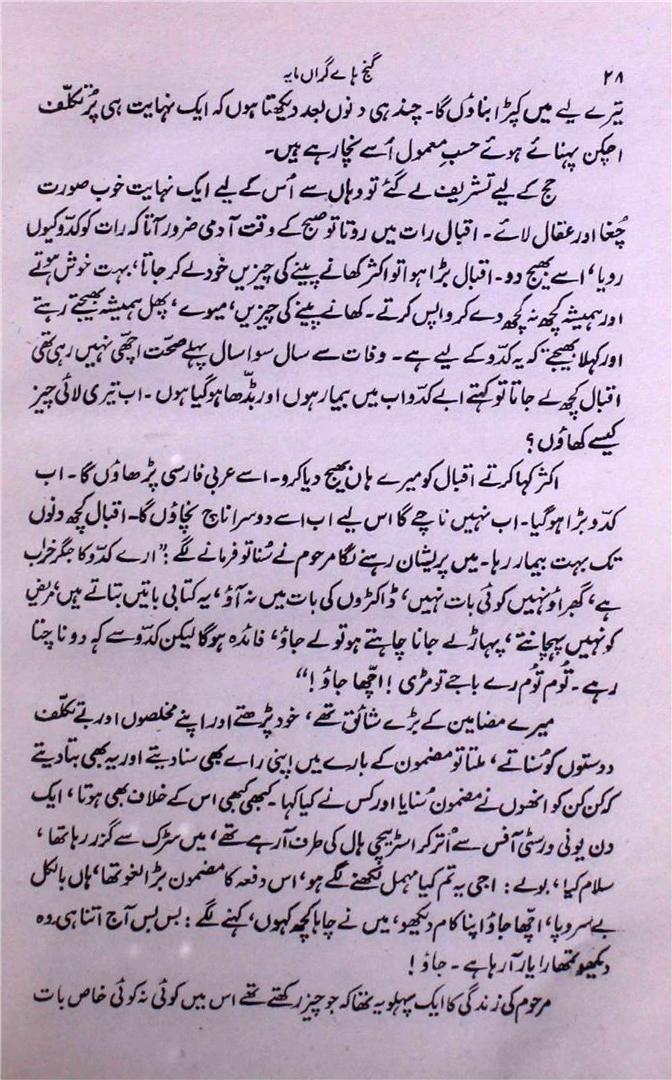 ۲۸ گنج ہاے گراں مایہ
تیرے لیے میں کپڑا بناؤں گا۔ چند ہی دنوں بعد دیکھتا ہوں کہ ایک نہایت ہی پُرتکلّف
اچکن پہنائے ہوئے حسبِ معمول اُسے نچا رہے ہیں۔
حج کے لیے تشریف لے گئے تو وہاں سے اُس کے لیے ایک نہایت خوب صورت
چُغا اور عقال لائے۔ اقبال رات میں روتا تو صبح کے وقت آدمی ضرور آتا کہ رات کو کدّو کیوں
رویا، اسے بھیج دو۔ اقبال بڑا ہوا تو اکثر کھانے پینے کی چیزیں خود لے کر جاتا، بہت خوش ہوتے
اور ہمیشہ کچھ نہ کچھ دے کر واپس کرتے۔ کھانے پینے کی چیزیں، میوے، پھل ہمیشہ بھیجتے رہتے
اور کہلا بھیجتے کہ یہ کدّو کے لیے ہے۔ وفات سے سال سوا سال پہلے صحّت اچھّی نہیں رہی تھی
اقبال کچھ لے جاتا تو کہتے ابے کدّو اب میں بیمار ہوں اور بڈّھا ہو گیا ہوں۔ اب تیری لائی چیز
کیسے کھاؤں؟
اکثر کہا کرتے اقبال کو میرے ہاں بھیج دیا کرو۔ اسے عربی فارسی پڑھاؤں گا۔ اب
کدّو بڑا ہو گیا۔ اب نہیں ناچے گا اس لیے اب اسے دوسرا ناچ نچاؤں گا۔ اقبال کچھ دنوں
تک بہت بیمار رہا۔ میں پریشان رہنے لگا مرحوم نے سُنا تو فرمانے لگے: ”ارے کدّو کا جگر خراب
ہے، گھبراؤ نہیں کوئی بات نہیں، ڈاکٹروں کی بات میں نہ آؤ، یہ کتابی باتیں بتاتے ہیں، مریض
کو نہیں پہچانتے، پہاڑ لے جانا چاہتے ہو تو لے جاؤ، فائدہ ہوگا لیکن کدّو سے کہہ دو ناچتا
رہے۔ تُوم تُوم رے باجے تومڑی! اچّھا جاؤ!“
میرے مضامین کے بڑے شائق تھے، خود پڑھتے اور اپنے مخلصوں اور بے تکلّف
دوستوں کو سُناتے، ملتا تو مضمون کے بارے میں اپنی راے بھی سنا دیتے اور یہ بھی بتا دیتے
کہ کن کن کو انھوں نے مضمون سُنایا اور کس نے کیا کہا۔ کبھی کبھی اس کے خلاف بھی ہوتا، ایک
دن یونی ورسٹی آفس سے اُتر کر اسٹریچی ہال کی طرف آ رہے تھے، میں سڑک سے گزر رہا تھا،
سلام کیا، بولے: اجی یہ تم کیا مہمل لکھنے لگے ہو، اس دفعہ کا مضمون بڑا لغو تھا، ہاں بالکل
بے سروپا، اچّھا جاؤ اپنا کام دیکھو، میں نے چاہا کچھ کہوں، کہنے لگے: بس بس آج اتنا ہی وہ
دیکھو تمھارا یار آ رہا ہے۔ جاؤ!
مرحوم کی زندگی کا ایک پہلو یہ تھا کہ جو چیز رکھتے تھے اس میں کوئی نہ کوئی خاص بات